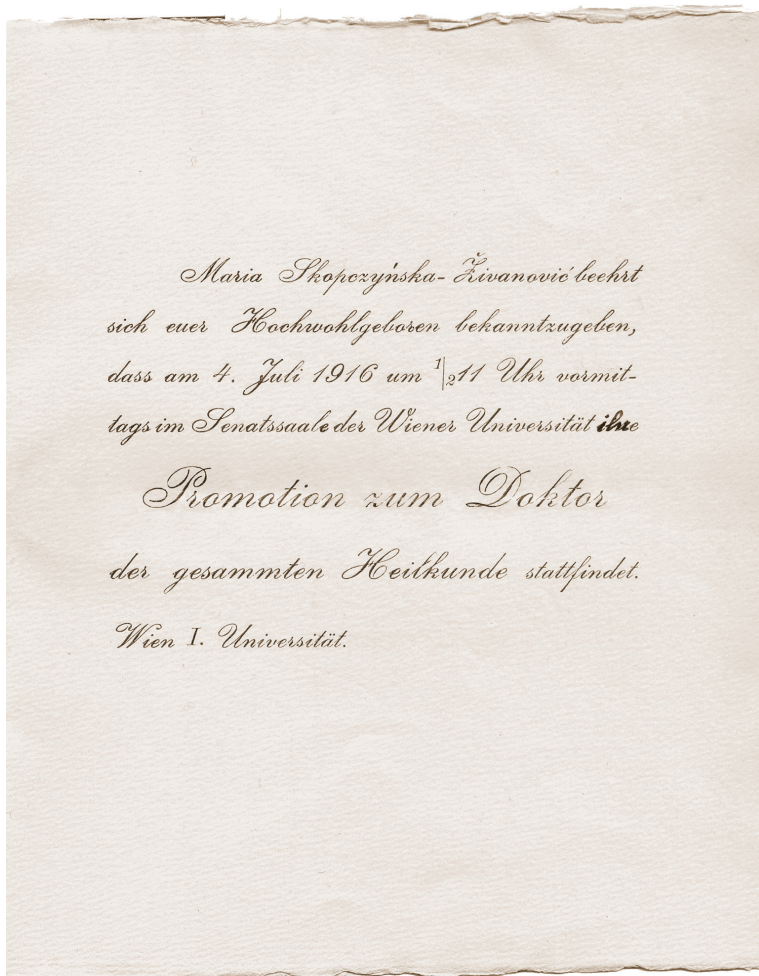 Maria Skopczyńska-Živanović beehrt
sich euer Hochwohlgeboren bekanntzugeben,
dass am 4. Juli 1916 um 1/2 11 Uhr vormit-
tags im Senatssaale der Wiener Universität ihre
Promotion zum Doktor
der gesammten Heilkunde stattfindet.
Wien I. Universität.